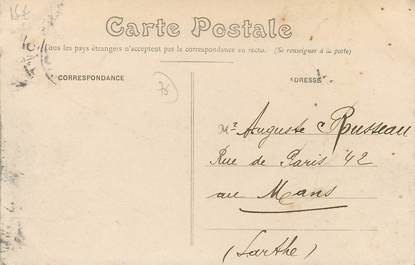 15€
Carte Postale
Tous les pays étrangers n'acceptent pas la correspondance au recto. (Se renseigner à la poste)
CORRESPONDANCE
ADRESSE
Mr Auguste Rousseau
Rue de Paris 42
au Mans
(Sarthe)